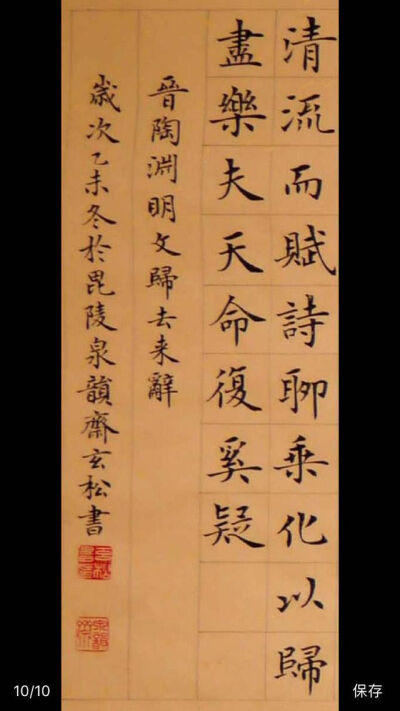 清流而賦詩聊乗化以歸
盡樂夫天命復奚疑
晉陶淵明文歸去来辭
歲次乙未冬於毘陵泉韻齋玄松書
10/10
保存